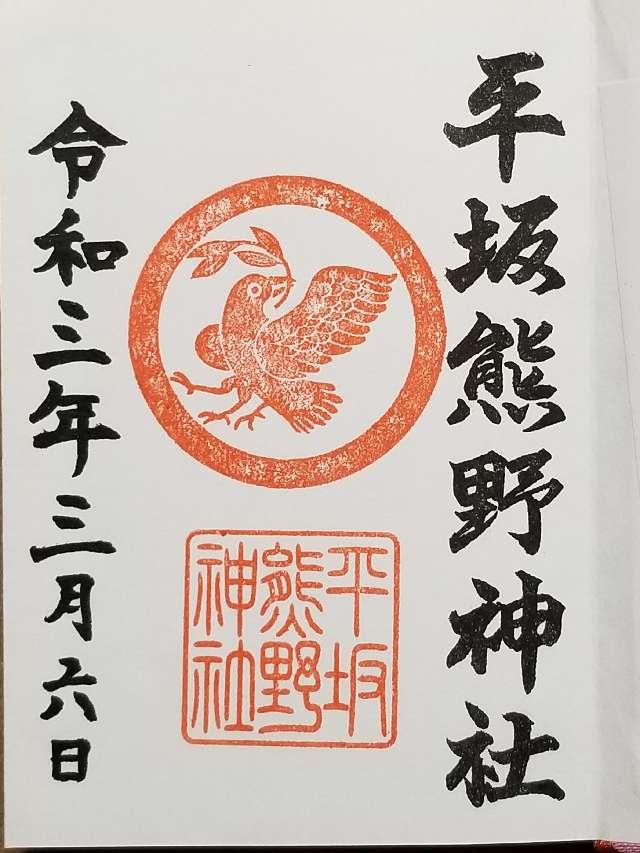 平坂熊野神社
平坂
熊野
神社
令和三年三月六日